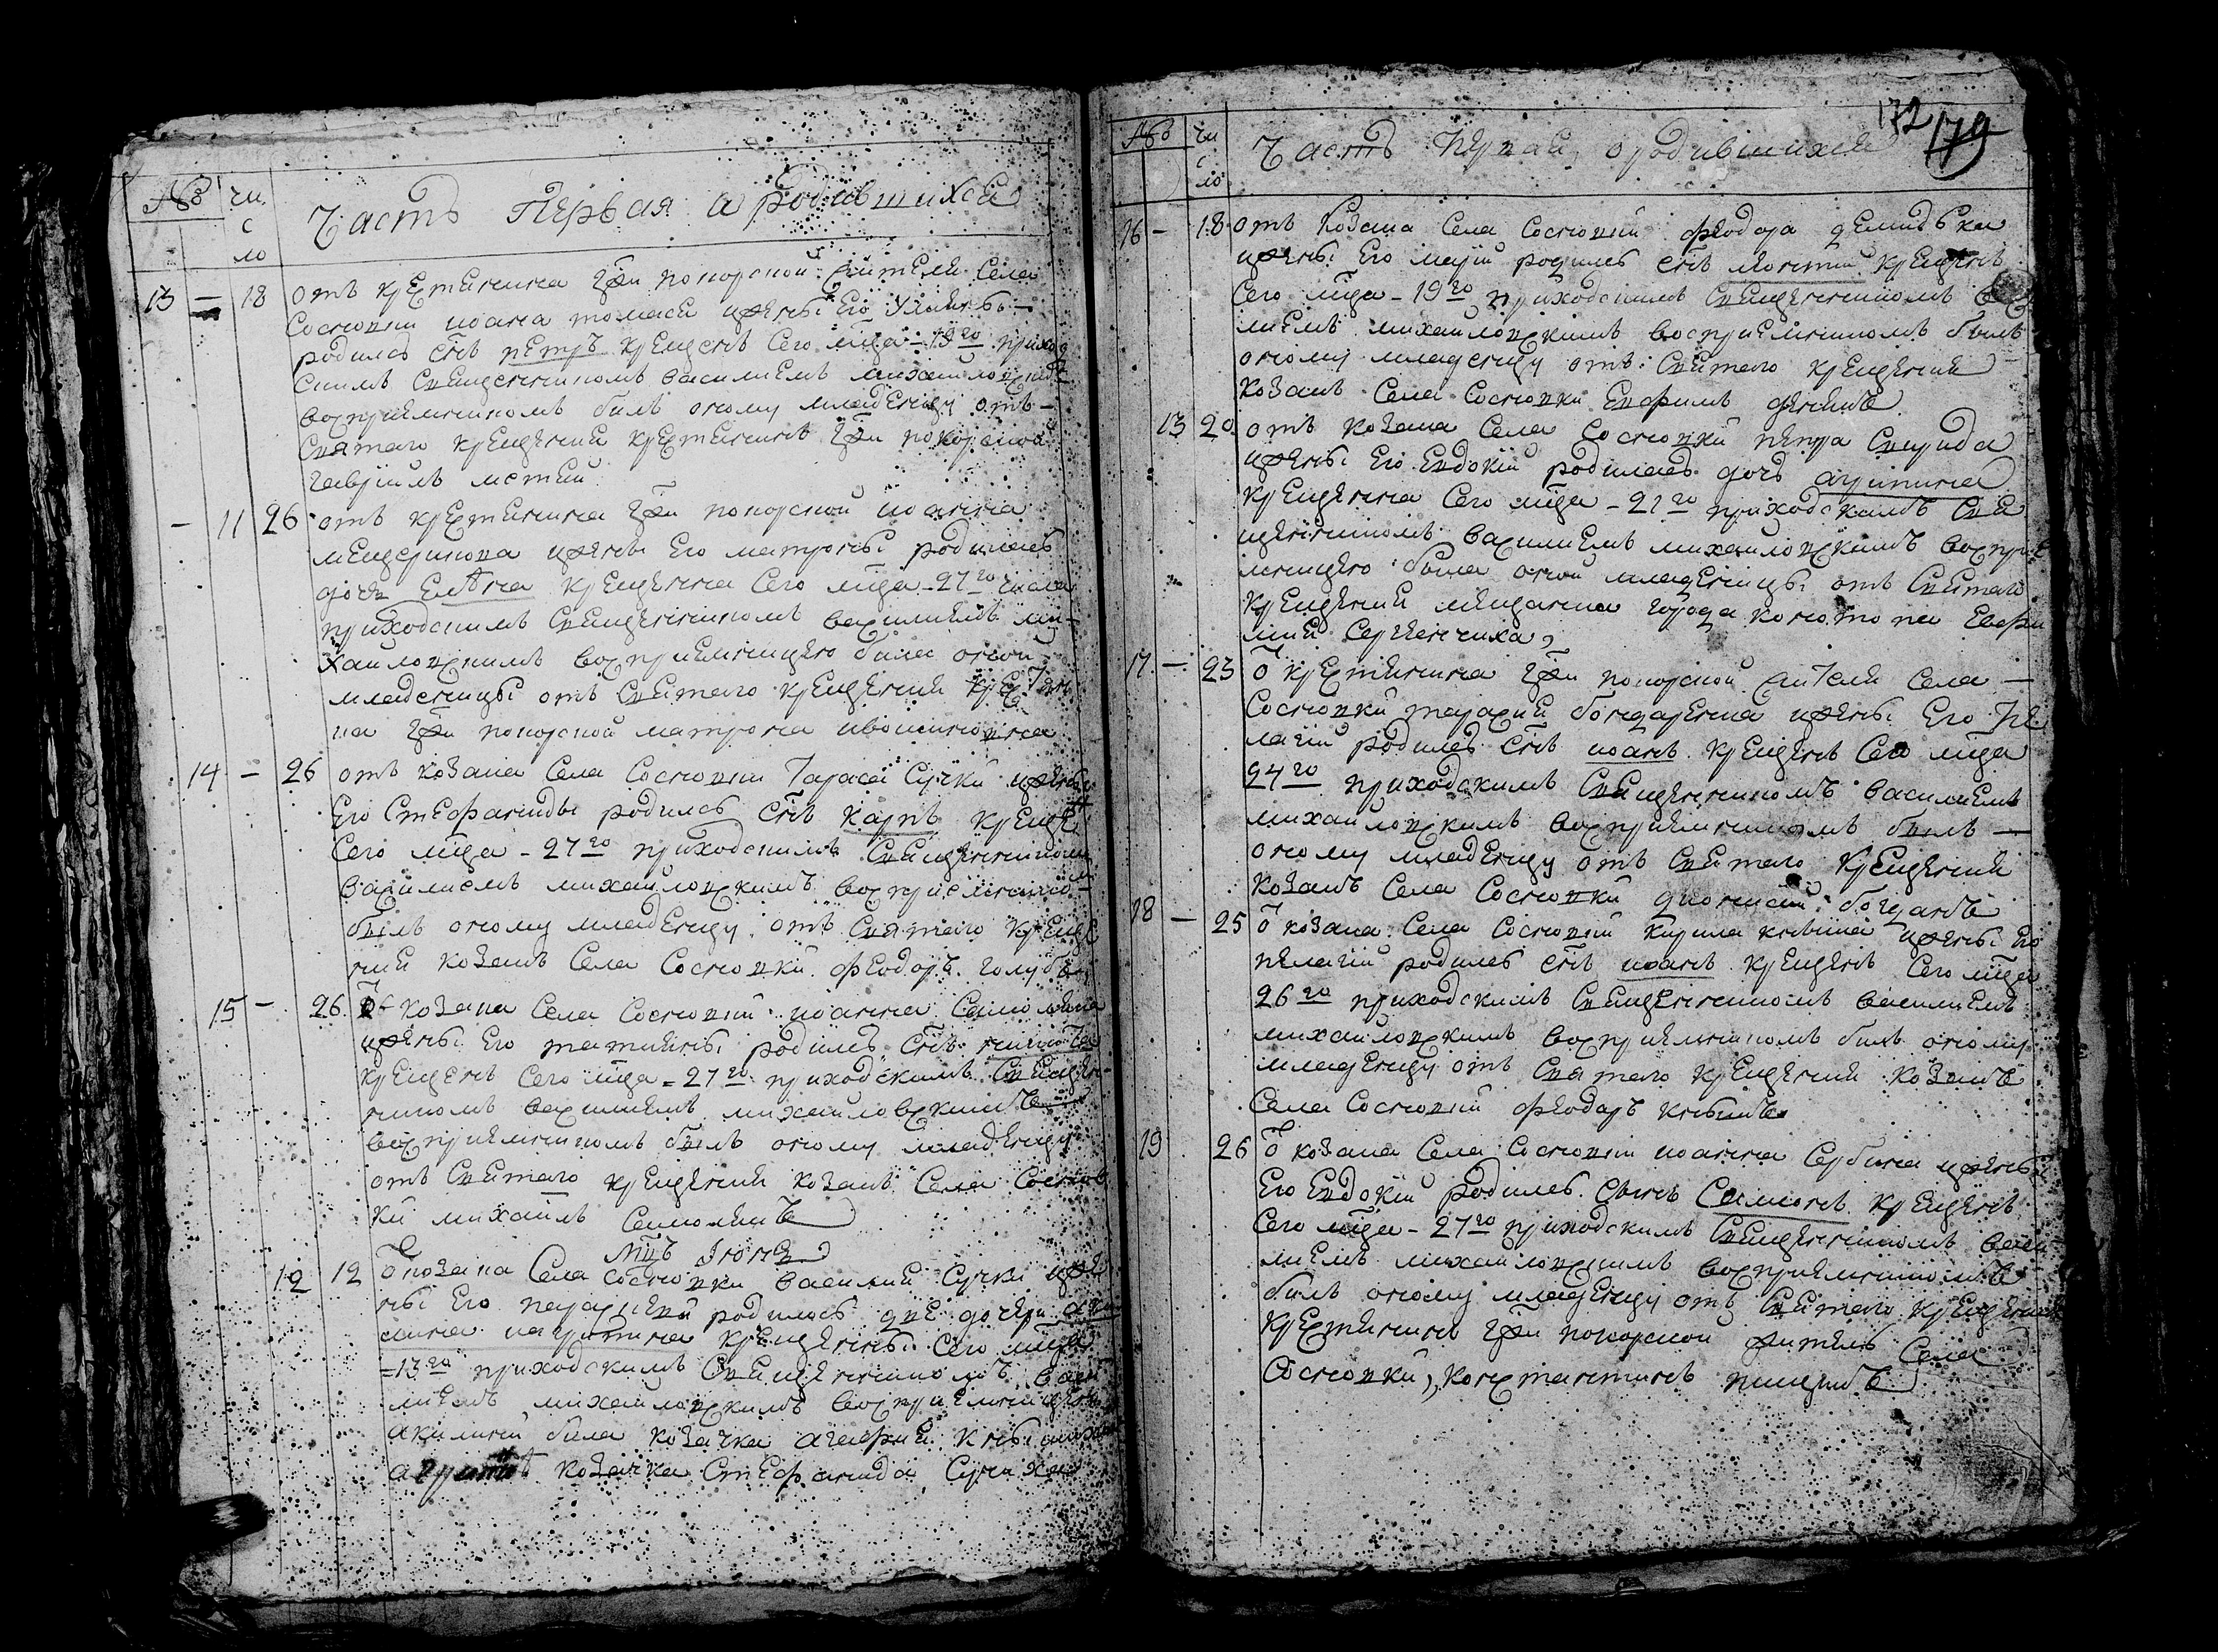 №
чи
с
ло
Часть Первая о родившихся
13 — 18 отъ крестянина Гжи покорской жителя Села
Сосновки иоанна томаса ижены Его Улияны
родился Снъ петръ крещенъ Сего мца - 19го приход
скимъ Священникомъ василиемъ михайловскимъ
восприемникомъ билъ оному младенцу отъ
Святаго крещения крестянинъ Гжи покорской
гавриилъ
— 11 26 отъ крестянина Гжи покорской иоанна
мещерикова ижены Его матроны родилась
дочь Елена крещенна Сего мца - 27го числа
приходскимъ Священникомъ василиемъ ми-
хайловскимъ восприемницею била оной
младеницы отъ Святаго крещения крестян
ка Гжи покорской матрона
14 — 26 отъ козака Села Сосновки Тараса Сучки ижены
Его Стефаниды родился Снъ Карпъ крещен
Сего мца - 27го приходскимъ Священникомъ
василиемъ михайловскимъ восприемником
билъ оному младенцу отъ Святаго креще
ния козакъ Села Сосновки феодоръ голубъ
15 — 26 От козака Села Сосновки иоанна Самоляка
ижены Его татияны родился Снъ
крещенъ Сего мца - 27го приходскимъ Священ
никомъ василиемъ михайловскимъ
восприемникомъ билъ оному младенцу
отъ Святаго крещения козакъ Села Соснов
ки михаилъ
Мцъ Июнь
12 12 От козака Села Сосновки василия Сучки иже
ны Его параскевы родились две дочери аки
лина иагрипина крещенны Сего мца
- 13го приходскимъ Священникомъ васи
лиемъ михайловскимъ восприемницею
акилины била козачка агафия
козачка Стефанида Сучиха
172
179
№
чи
с
ло
Часть Первая, ородившихся
16 — 18 отъ козака Села Сосновки феодора демидька
ижены Его марии родился Снъ леонтий крещенъ
Сего мца - 19го приходскимъ Священникомъ васи
лиемъ михайловскимъ восприемникомъ билъ
оному младенцу отъ Святаго крещения
козакъ Села Сосновки Евфимъ
13 20 отъ козака Села Сосновки петра Свирида
ижены Его Евдокии родилась дочь агрипина
крещенна Сего мца - 21го приходскимъ Свя
щенникомъ василиемъ михайловскимъ восприе
мницею била оной младеницы отъ Святаго
крещения мещанка города конотопа Евфи
мия Сергиенчиха,
17 — 23 От крестянина Гжи покорской жителя Села —
Сосновки тарасия бондаренка ижены Его Пе
лагии родился Снъ иоанъ крещенъ Сего мца
24го приходскимъ Священникомъ василиемъ
михайловскимъ восприемникомъ билъ —
оному младенцу отъ Святаго крещения
козакъ Села Сосновки дионисий
18 — 25 От козака Села Сосновки Кирила ижены Его
пелагии родился Снъ иоанъ крещенъ Сего мца
26го приходскимъ Священникомъ василиемъ
михайловскимъ восприемникомъ билъ оному
младенцу отъ Святаго крещения козакъ
Села Сосновки феодоръ
19 26 От козака Села Сосновки иоанна Сербина ижены
Его Евдокии родился Сынъ Самсонъ крещенъ
Сего мца - 27го приходскимъ Священникомъ васи
лиемъ михайловскимъ восприемникомъ
билъ оному младенцу отъ Святаго крещения
крестянинъ Гжи покорской житель Села
Сосновки, константинъ